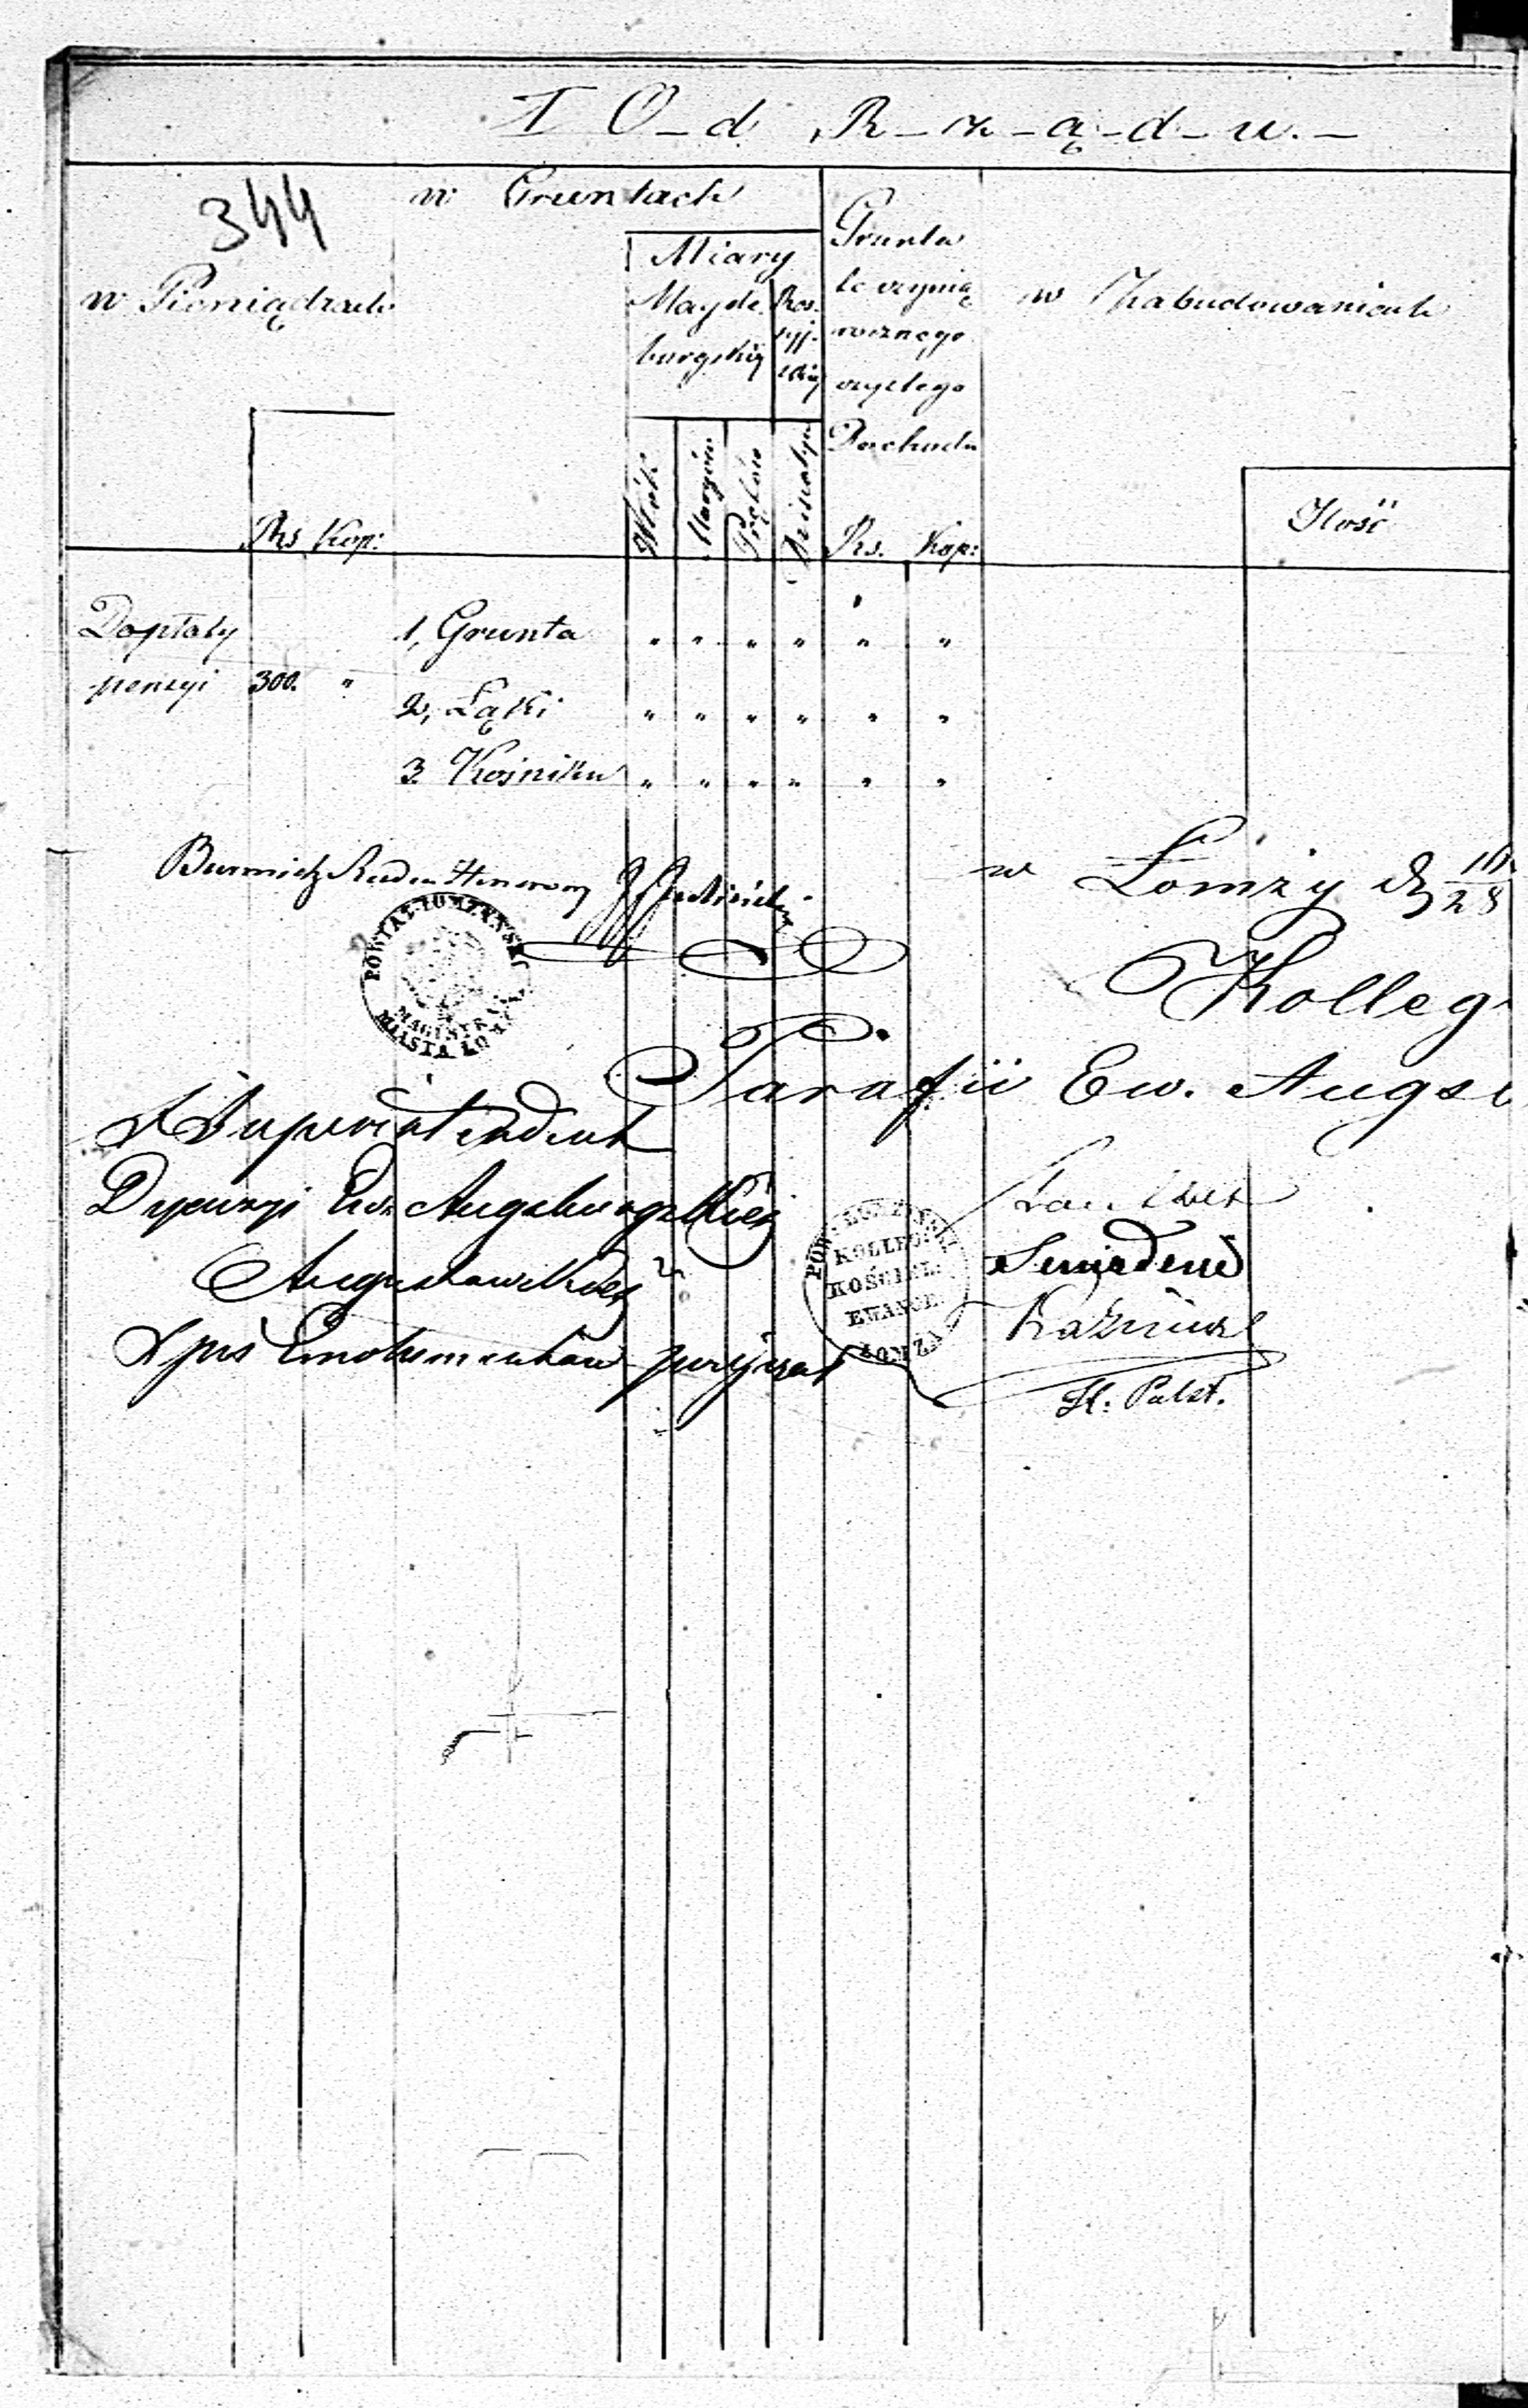 I O-d R-z-ą-d-u.-
344
w Pieniądzach
Rs Kop:
w Gruntach
Miary
Magde
burgskiéj
Ros-
syj-
skiéj
Włók
Morgów
Prętów
Dziesiatyn
Grunta
te czynią
rocznego
czystego
Dochodu
Rs. Kop:
w Zabudowaniach
Ilość
Dopłaty
pensyi 300. "
1, Grunta " " " " " "
2, Łąki " " " " " "
3. Kośnika " " " " " "
Burmistrz Radca Honorowy
w Łomży d. 16/28
POWIAT ŁOMŻYŃSKI
MAGISTRAT
MIASTA ŁOMŻA
Kolleg
Parafii Ew. Augsb
Superintendent
Dyecezyi Ew. Augsburgskiéj
Augustowskiéj
Spis Emolumentów przejrzał
POW. ŁOMŻYŃSKI
KOLLEG.
KOŚCIEL.
EWANGE.
ŁOMŻA
H. Palst.